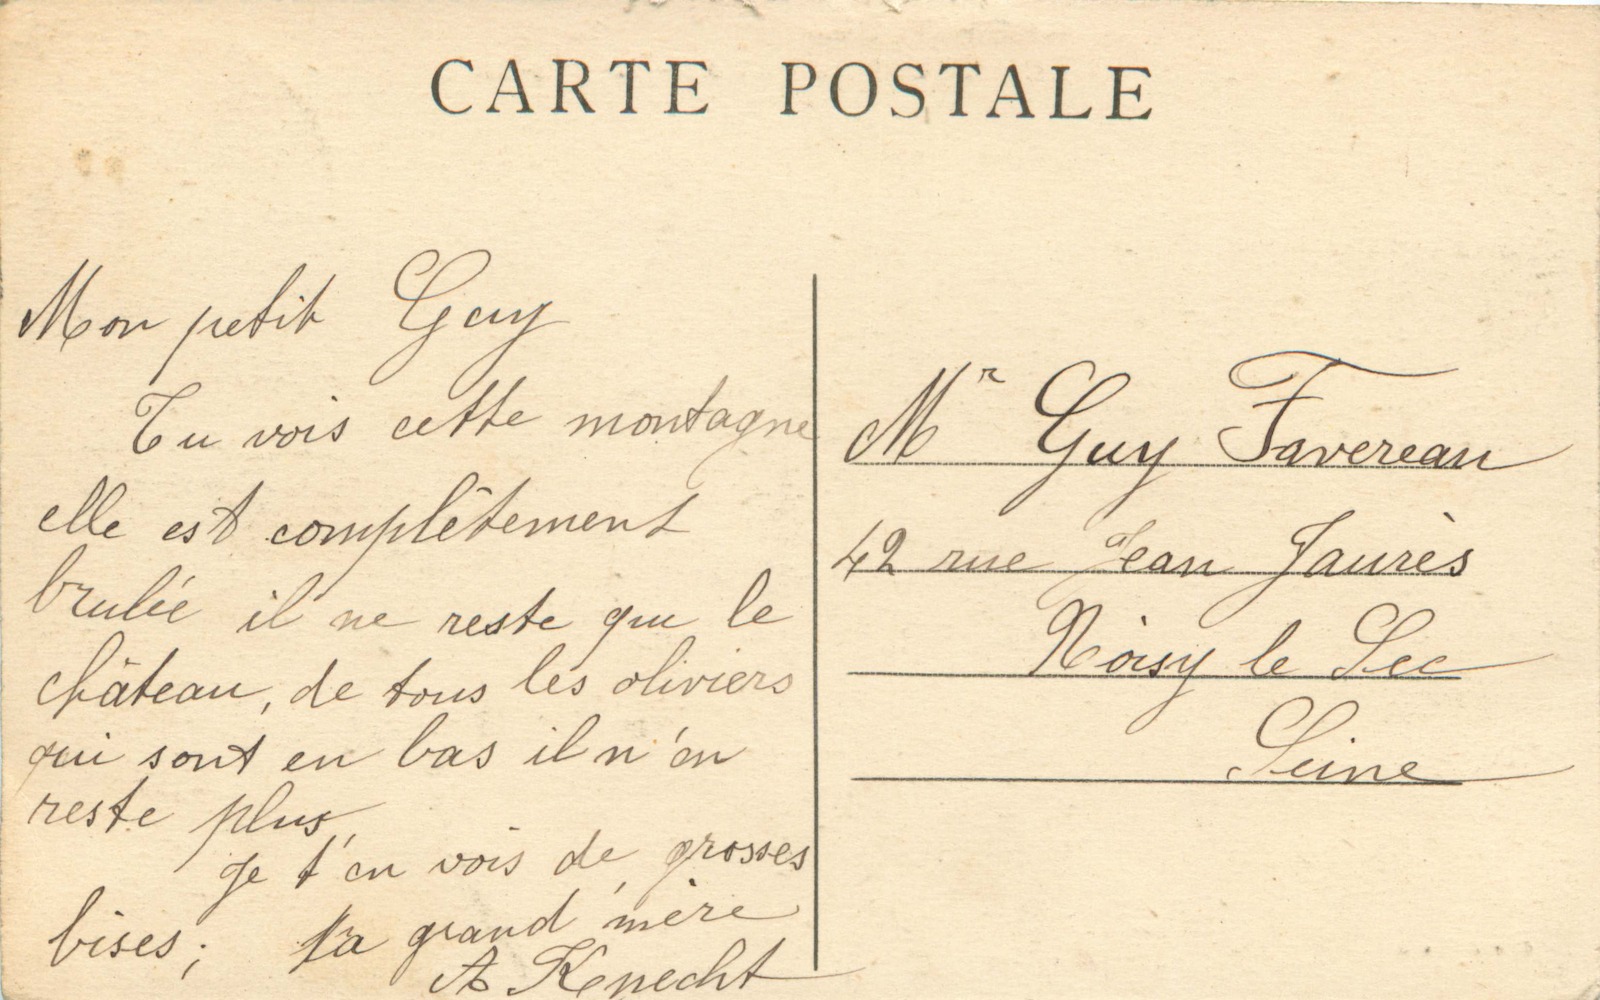 CARTE POSTALE
Mon petit Guy
Tu vois cette montagne
elle est complêtement
brulée il ne reste que le
château, de tous les oliviers
qui sont en bas il n'en
reste plus,
je t'en vois de grosses
bises; ta grand'mère
A Knecht
Mr Guy Favereau
42 rue Jean Jaurès
Noisy le Sec
Seine